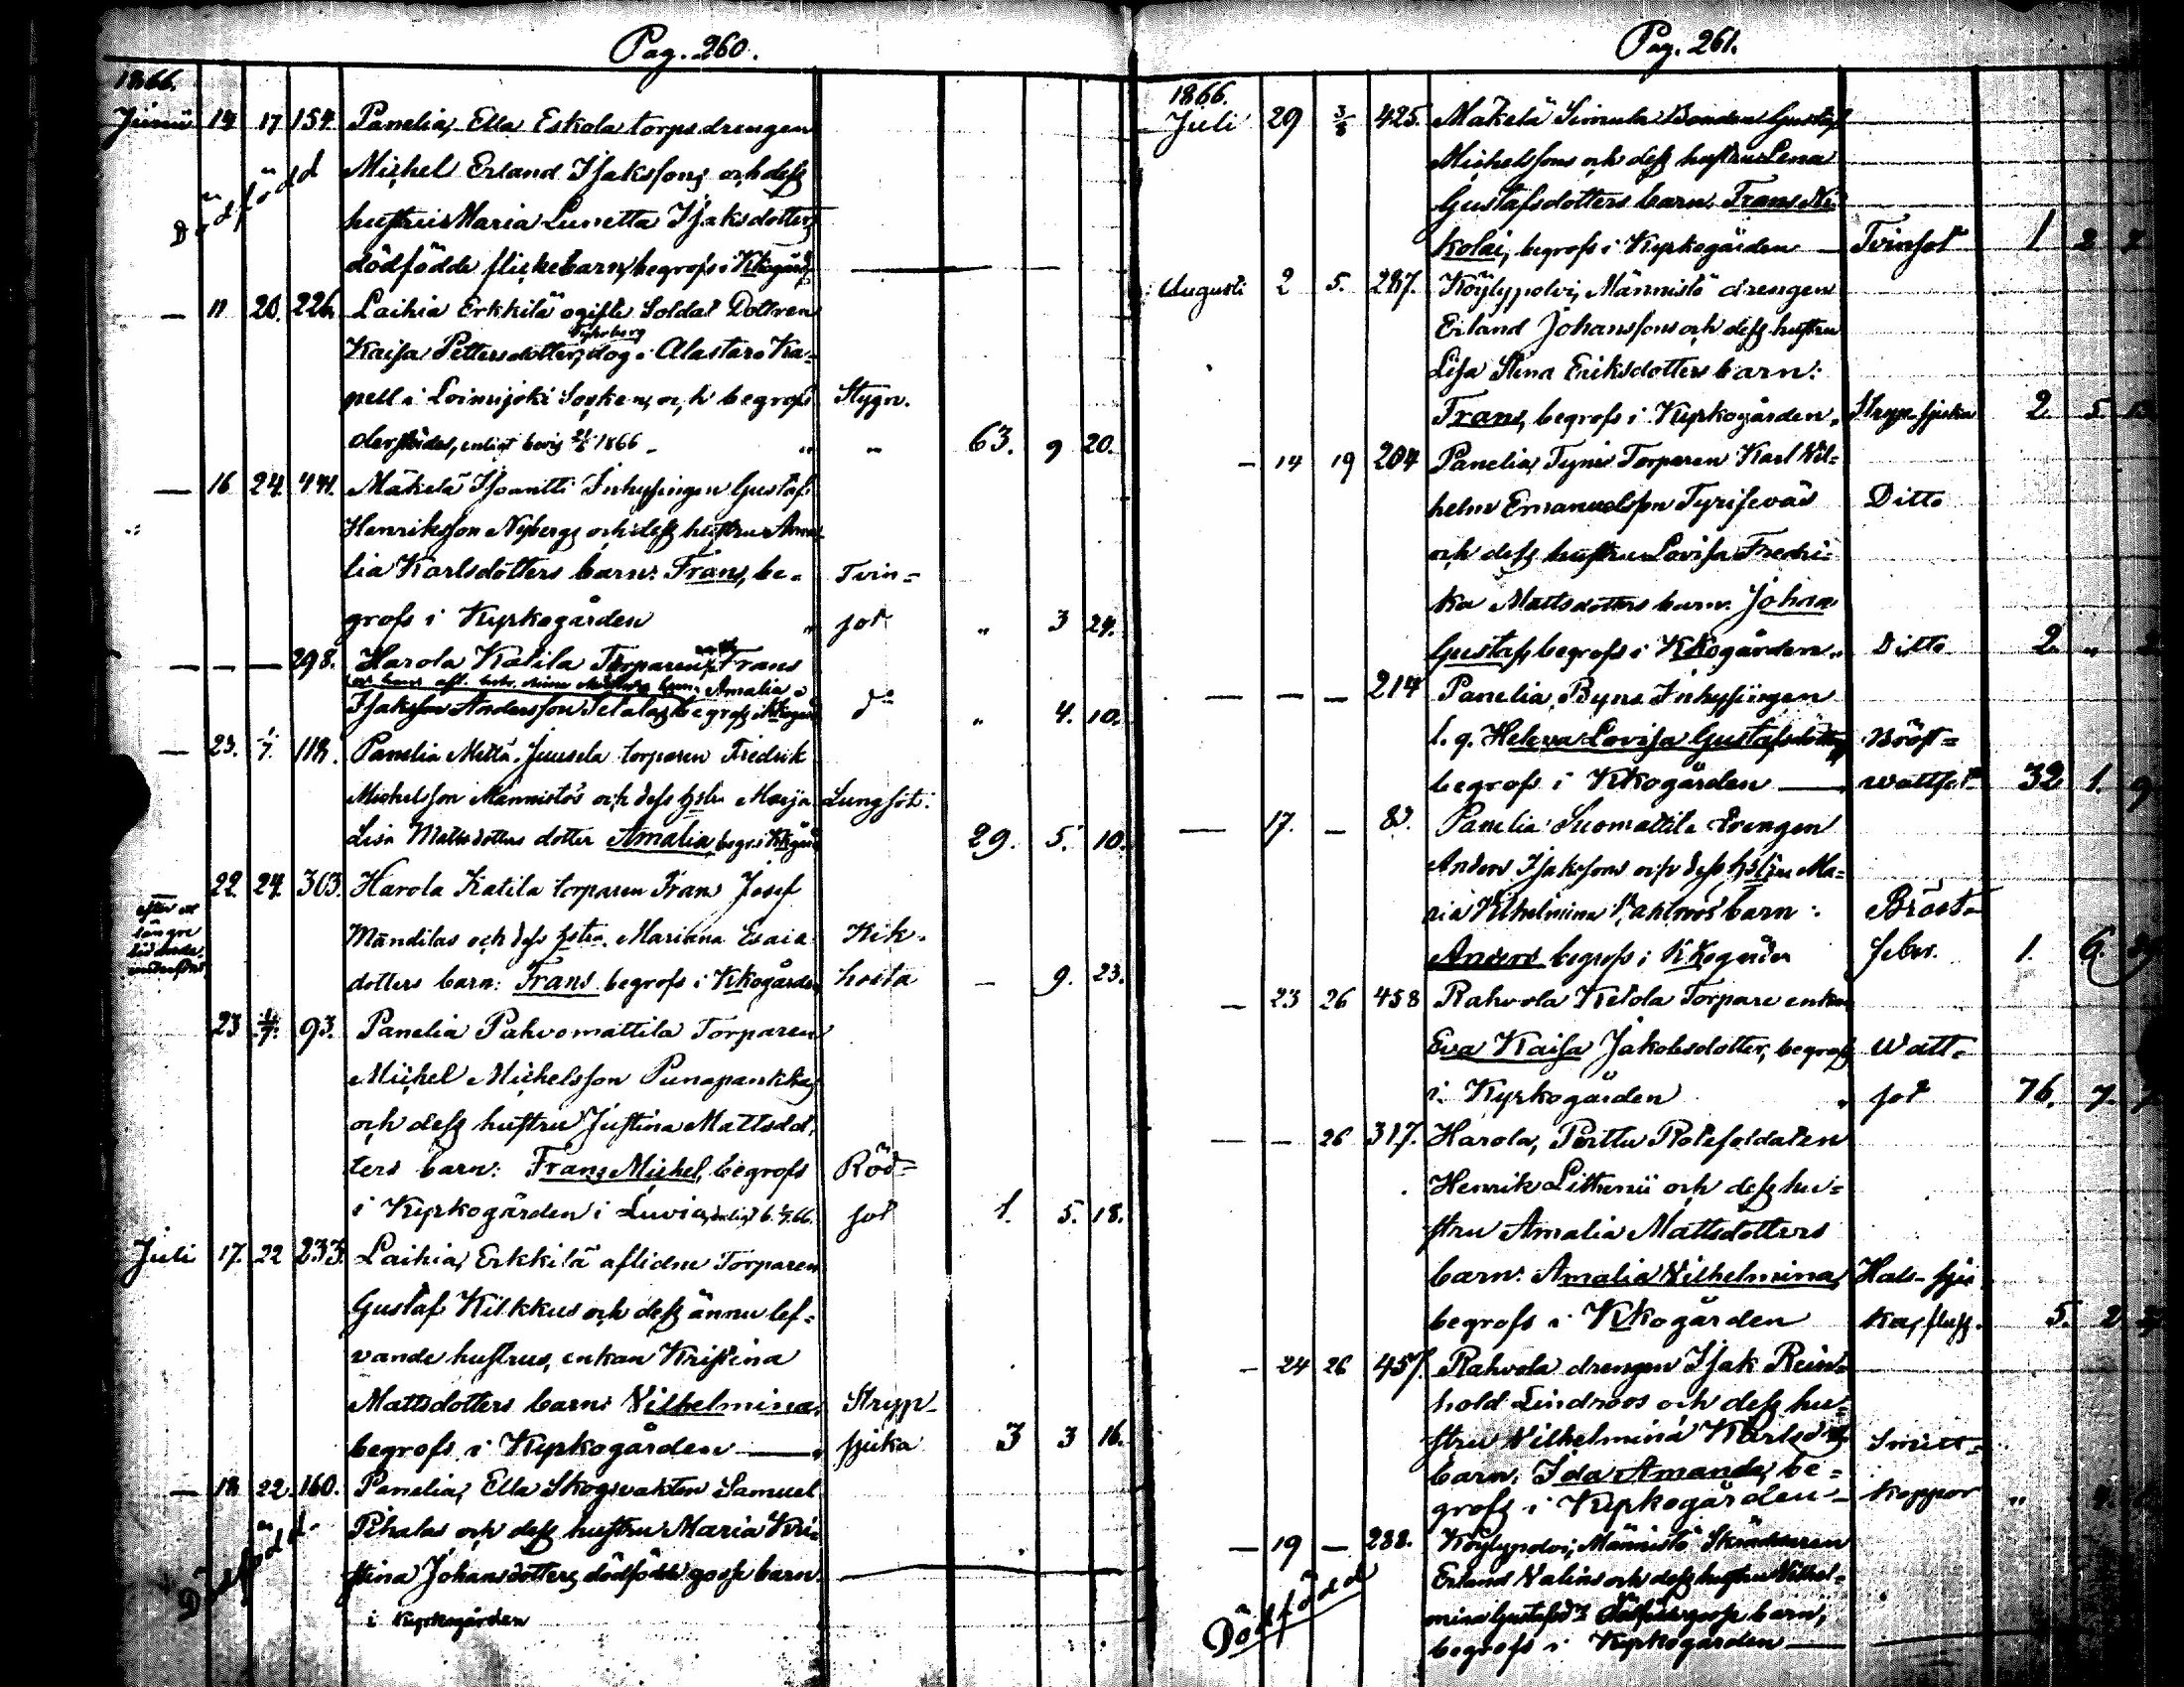 Pag. 260.
1866.
Junii 14 17 154. Panelia, Ella Eskola torpsdrengen
Michel Erland Isaksons och dess
Dödfödd
hustrus Maria Lunetta Isaksdotters
dödfödde flickebarn, begrofs i Kkogård
— 11 20. 226. Laihia Erkkilä ogifte Soldat Dottren
Kaisa Pettersdotter, dog i Alastaro Ka-
pell i Loimijoki Socken, och begrofs Stygn.
derstädes, enligt bevis 1866 „ „ 63. 9 20.
— 16 24. 441. Mäkelä Inhysingen Gustaf
Henriksson Nybergs och dess hustrus Ama-
lia Karlsdotters barn: Frans, be- Tvin-
grofs i Kyrkogården „ sot „ 3 24.
— — — 298. Harola Katila Torparen Frans
Amalia
Isakson Andersson begrofs i Kkogård do „ 4. 10.
— 23. 1/7. 118. Panelia Mellä Juusela torparen Fredrik
Michelsson Männistös och dess hstru Maija Lungsot.
Lisa Mattsdotters dotter Amalia, begr. i Kkgård 29. 5. 10.
— 22. 24. 303. Harola Katila torparen Frans Josef
Mändilas och dess hstru Mariana Esaia Kik-
dotters barn: Frans begrofs i Kkogården hosta — 9. 23.
23 1/7. 93. Panelia Pahvomattila Torparen
Michel Michelsson Punapankkas
och dess hustru Justina Mattsdot,
ters barn: Frans Michel, begrofs Röd-
i Kyrkogården i Luvia, enligt b. 66. sot 1. 5. 18.
Juli 17. 22 233. Laihia, Erkkilä aflidne Torparen
Gustaf Kilkkus och dess ännu lef-
vande hustrus, enkan Kristina
Mattsdotters barn: Vilhelmina, Stryp-
begrofs i Kyrkogården — sjuka 3 3 16.
— 18 22. 160. Panelia, Ella Skogvakten Samuel
Pihalas och dess hustru Maria Kri-
Dödfödd.
stina Johansdotters, dödfödde gosse barn.
i Kyrkogården
Pag. 261.
1866.
Juli 29 3/8 425. Mäkelä Simula Bonden Gustaf
Michelssons och dess hustru Lena
Gustafsdotters barn, Frans Ni-
kolai, begrofs i Kyrkogården — Tvinsot 1 2
Augusti 2 5. 287. Köylypolvi, Männistö drengen
Erland Johanssons och dess hustru
Lisa Stina Eriksdotters barn:
Frans, begrofs i Kyrkogården, Strypsjuka 2. 5.
— 14 19 204 Panelia, Tyni Torparen Karl Vil-
helm Emanuelsson Tyriseväs Ditto
och dess hustru Lovisa Fredri-
ka Mattsdotters barn: Johan
Gustaf, begrofs i Kkogården „ Ditto 2. „
— — — 214 Panelia, Byns Inhysingen
l. q. Helena Lovisa Gustafsdotter, Bröst-
begrofs i Kkogården — wattsot 32 1. 9
— 17. — 83. Panelia Suomattila Drengen
Anders Isaksons och dess hstru Ma-
ria Vilhelmina barn: Bröst-
Anders begrofs i Kkogården feber. 1. 6.
— 23 26 458 Rahvola Ketola Torpare enkan
Eva Kaisa Jakobsdotter, begrofs Watt-
i Kyrkogården „ sot 76. 7.
— — 26 317. Harola, Perttu Rotesoldaten
Henrik Lithenii och dess hu-
stru Amalia Mattsdotters
barn: Amalia Vilhelmina, Hals-sju-
begrofs i Kkogården ka, fluss. 5. 2
— 24 26 457. Rahvola drengen Isak Rein-
hold Lindroos och dess hu-
stru Vilhelmina Karlsdot.
barn, Ida Amanda, be- Smitt-
grofs i Kyrkogården — koppor „ 4.
— 19 — 288. Köylypolvi, Männistö Skräddaren
Erland Valins och dess hustru Vilhel-
Dödfödd
mina Gustafsdrs dödfödde gosse barn,
begrofs i Kyrkogården —